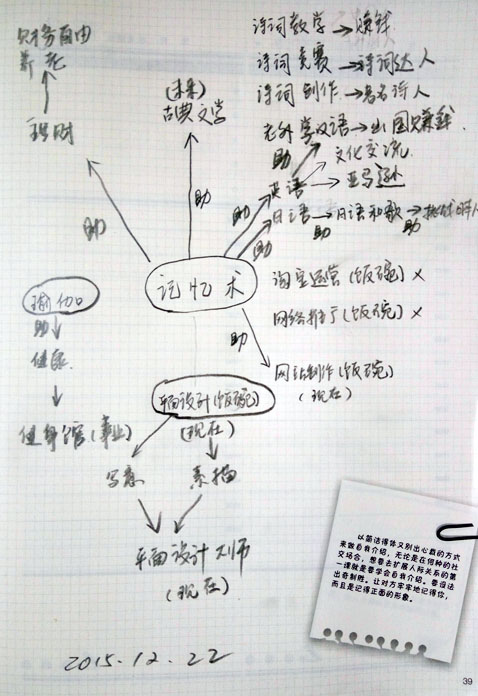 财务自由
养老
理财
助
(未来)
古典文学
助
诗词教学→赚钱
诗词竞赛→诗词达人
诗词创作→著名诗人
老外学汉语→出国赚钱
助
文化交流
助
英语→亚马逊
助
日语→日语和歌→挑战
助
助
记忆术
淘宝运营(饭碗)×
网络推广(饭碗)×
助
网站制作(饭碗)
(现在)
瑜伽
助
健康
健身馆(事业)
平面设计(饭碗)
(现在)
写意
素描
平面设计大师
(现在)
2015.12.22
以简洁得体又别出心裁的方式
来做自我介绍，无论是在何种的社
交场合，想要去扩展人际关系的第
一课就是要学会自我介绍。要设法
出奇制胜。让对方牢牢地记得你，
而且是记得正面的形象。
39